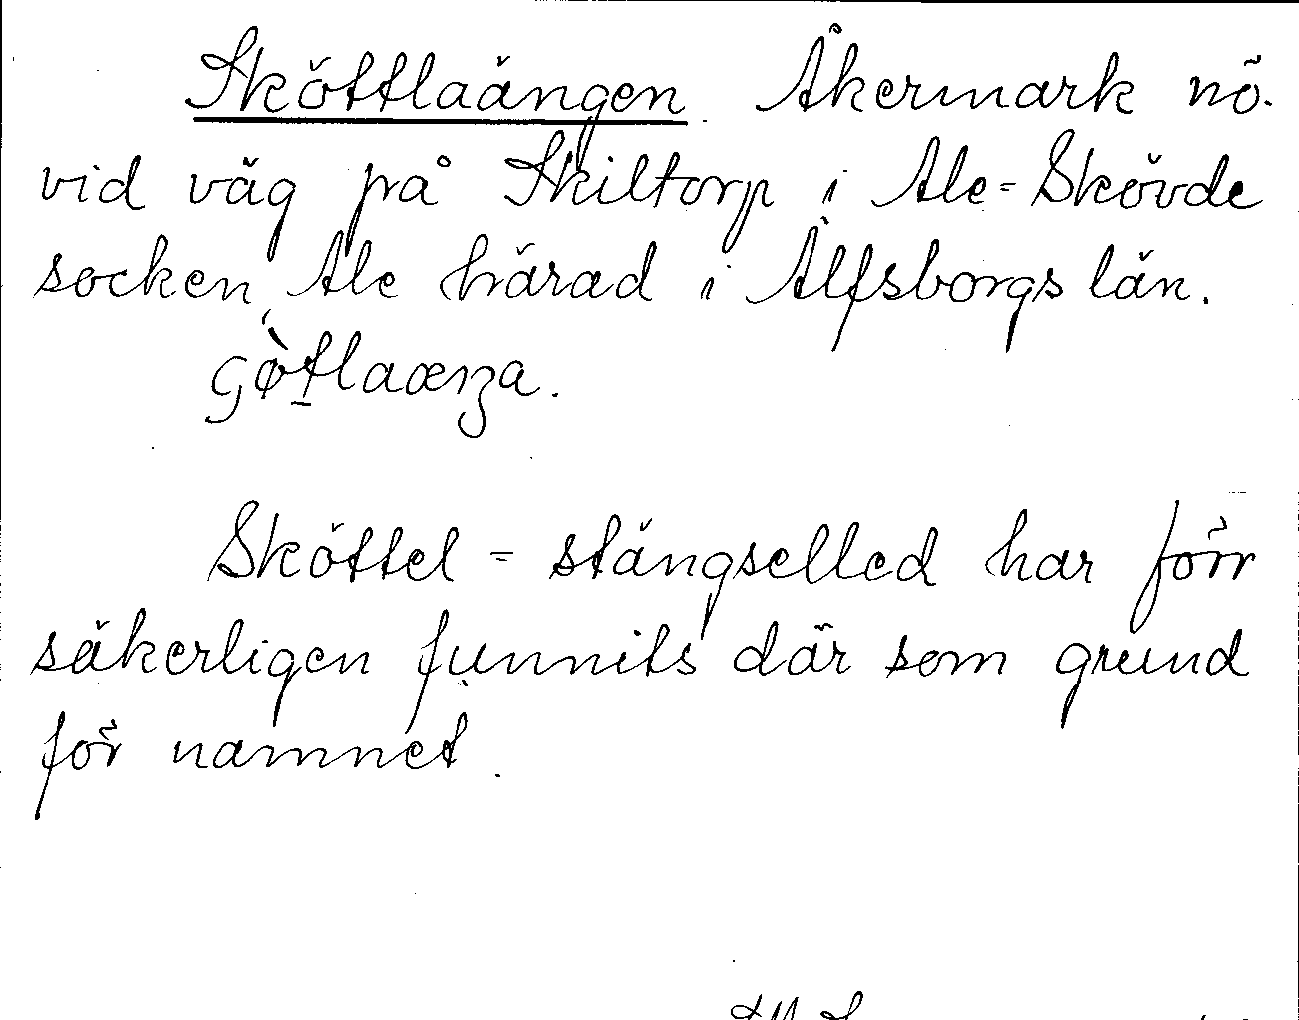 Sköttlaängen. Åkermark nö.
vid väg på Skiltorp i Ale-Skövde
socken, Ale härad i Älfsborgs län.
Sköttel = stängselled har förr
säkerligen funnits där som grund
för namnet.